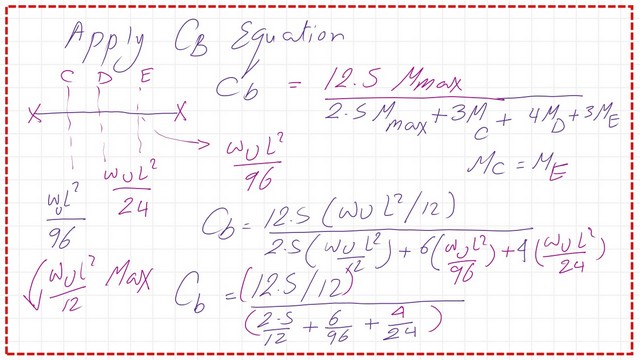 Apply CB Equation
C D E
Cb = 12.5 Mmax / 2.5 Mmax + 3MC + 4MD + 3ME
x x
WUL²/96 WUL²/24 WUL²/96
MC = ME
WUL²/12 Max
Cb = 12.5 (WUL²/12) / 2.5 (WUL²/12) + 6 (WUL²/96) + 4 (WUL²/24)
Cb = (12.5/12) / (2.5/12 + 6/96 + 4/24)